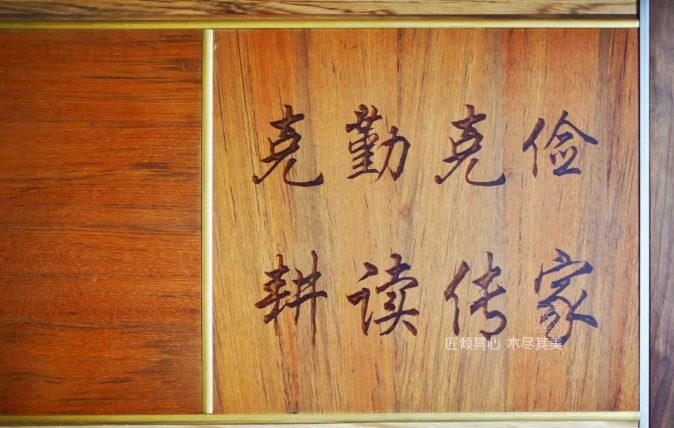 克勤克俭
耕读传家
匠倾其心 木尽其美